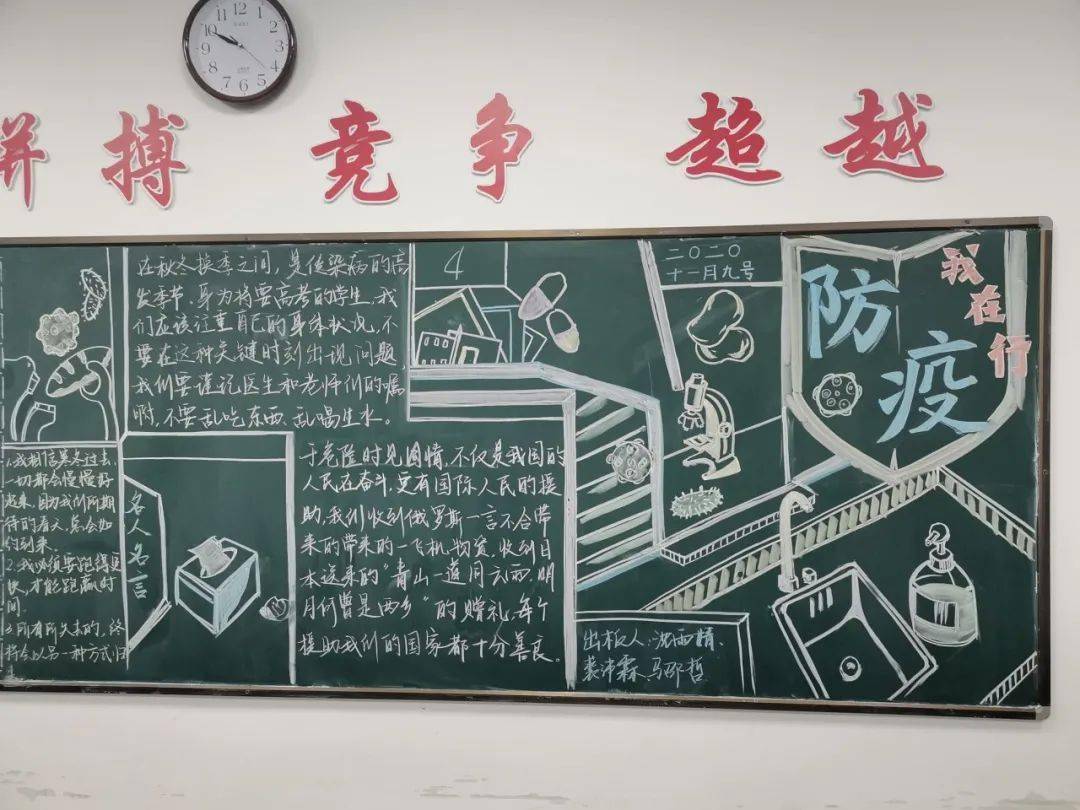 拼搏 竞争 超越
在秋冬换季之间，是传染病的高
发季节，身为将要高考的学生，我
们应该注重自己的身体状况，不
要在这种关键时刻出现问题，
我们要谨记医生和老师们的嘱
咐，不要乱吃东西、乱喝生水。
4
二〇二〇
十一月九号
防疫
我在行
1.我相信寒冬过去，
一切都会慢慢好
起来，因为我们所期
待的春天，总会如
约到来。
2.我必须要跑得更
快，才能跑赢时
间。
3.所有所失去的，终
将会以另一种方式归
名人名言
于危险时见国情，不仅是我国的
人民在奋斗，更有国际人民的援
助，我们收到俄罗斯一言不合带
来的带来的一飞机物资，收到日
本送来的“青山一道同云雨，明
月何曾是两乡”的赠礼，每个
援助我们的国家都十分善良。
出板人：沈雨精、
裴沛霖、马邵哲